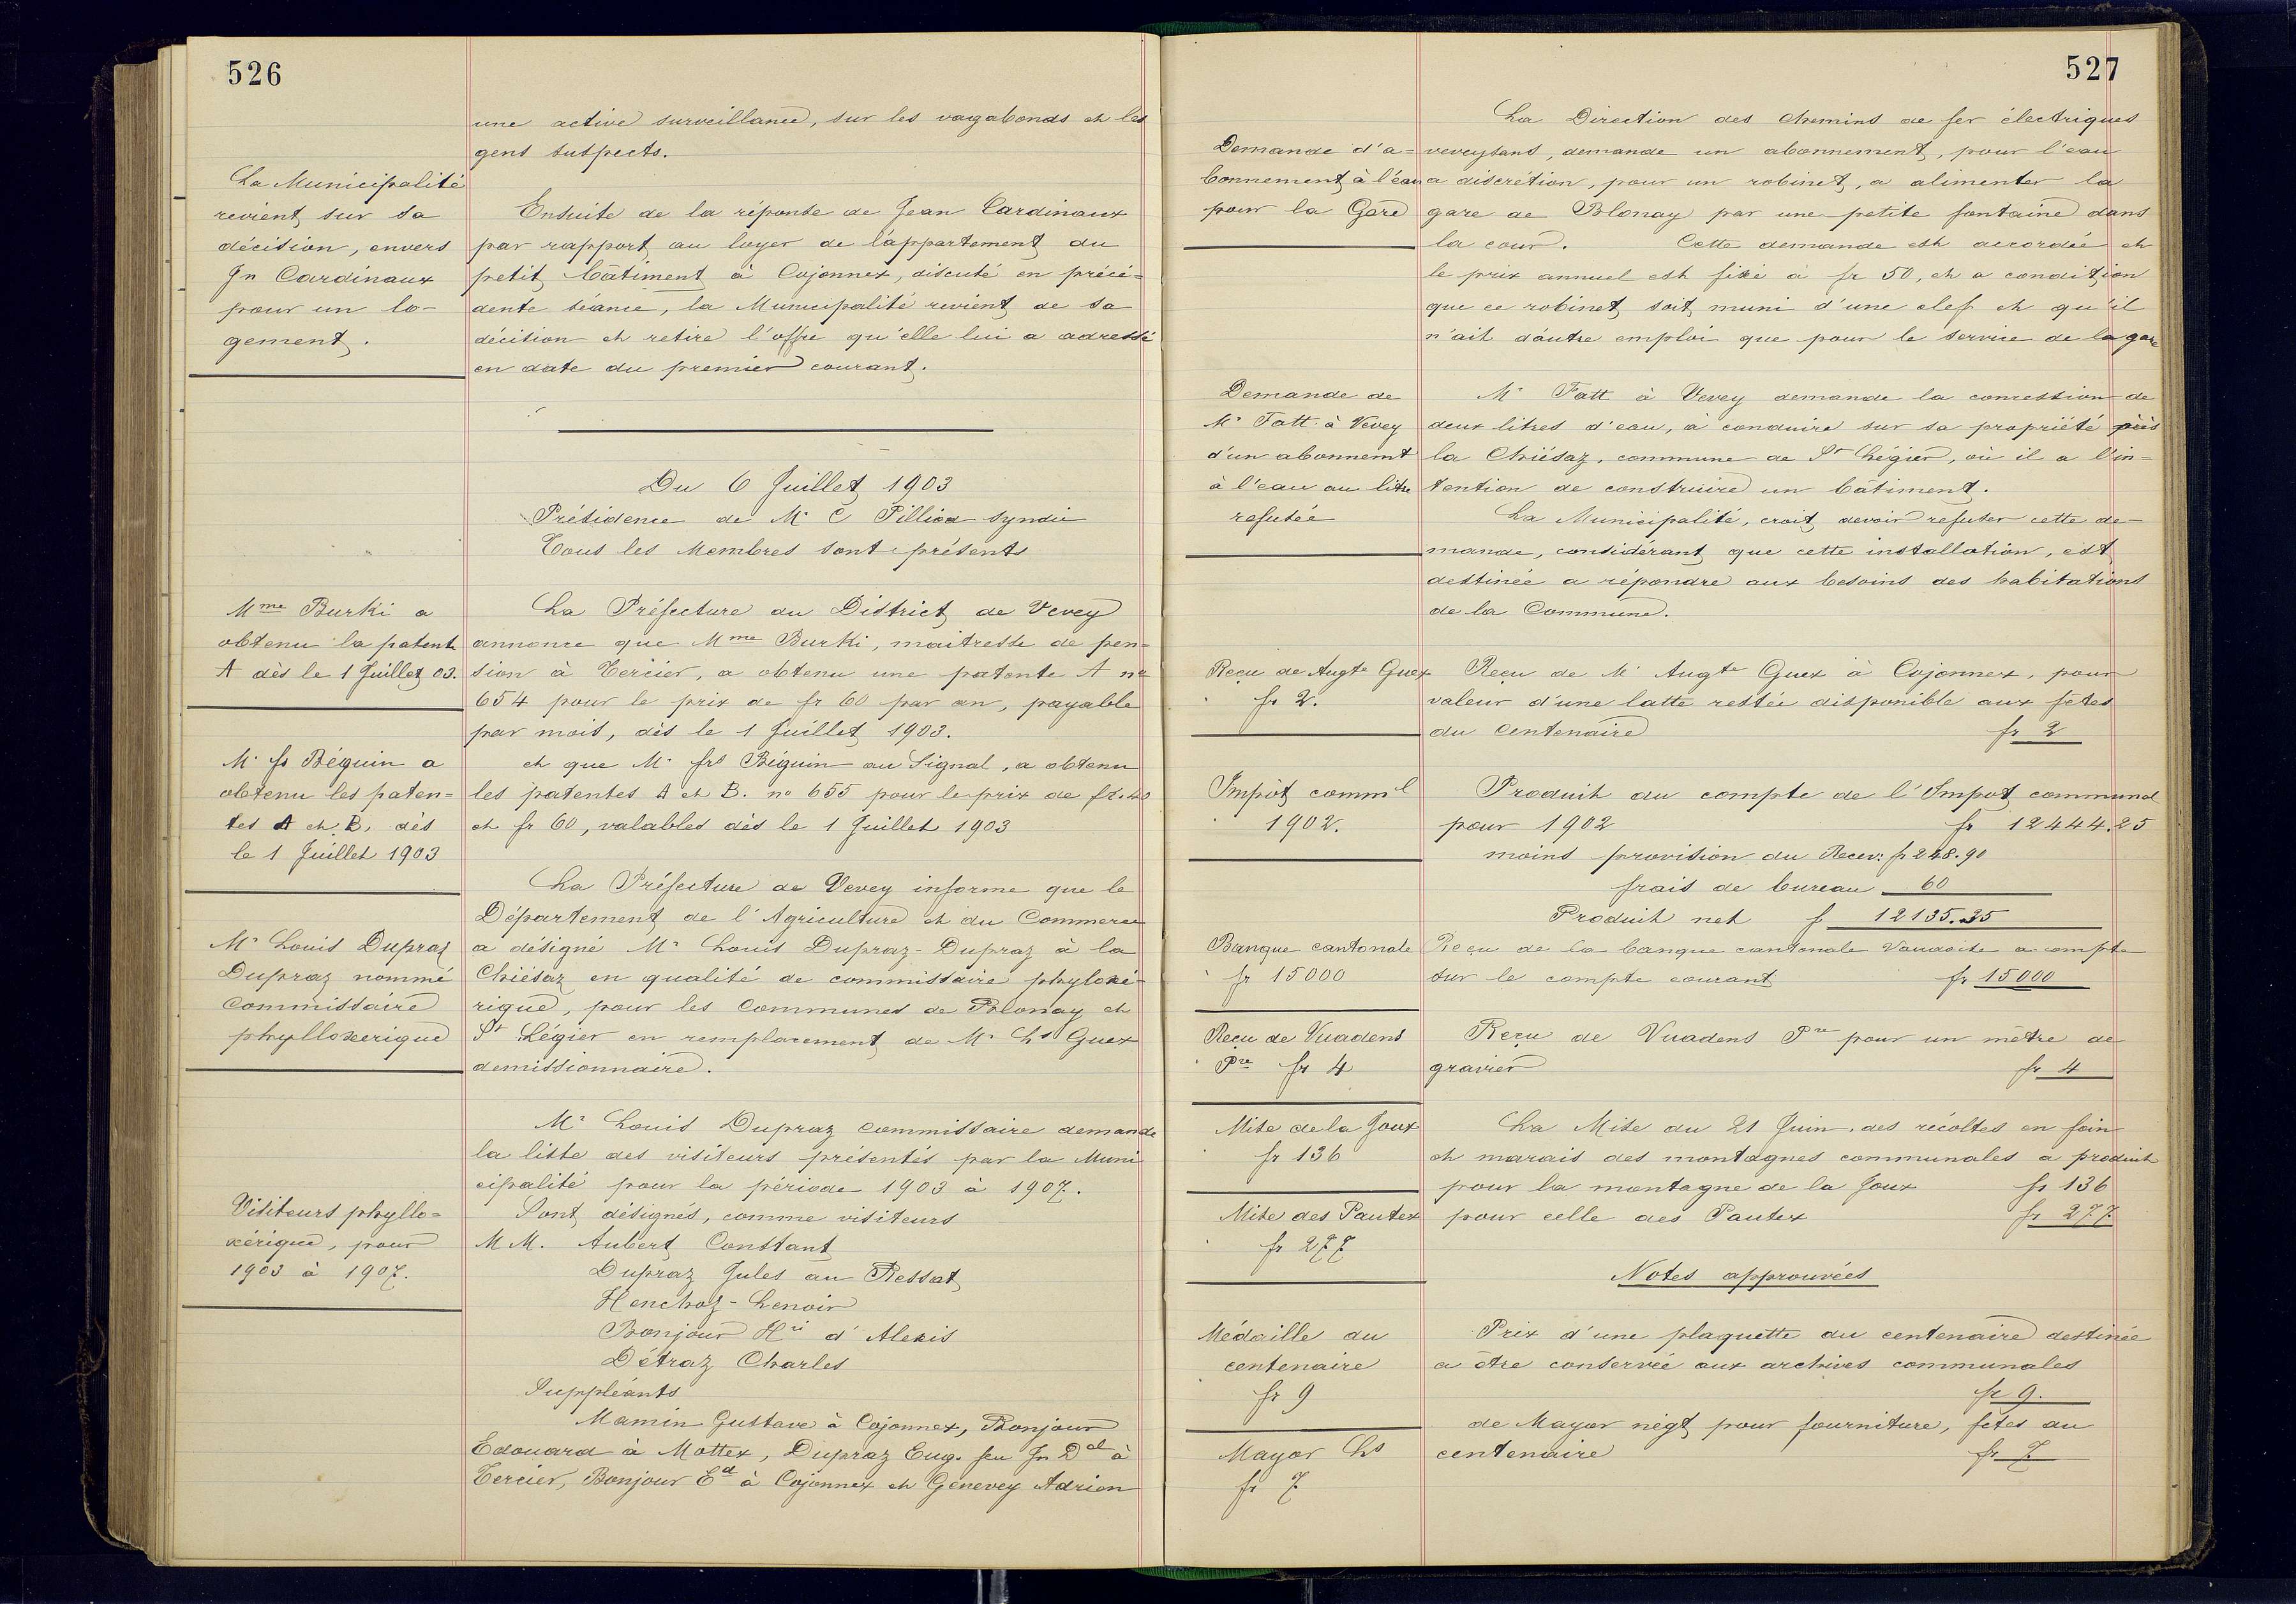 526
une active surveillance, sur les vagabonds et les
gens suspects.
La Municipalité
revient sur sa
décision, envers
Jn Cardinaux
pour un lo-
gement.
Ensuite de la réponse de Jean Cardinaux
par rapport au loyer de l'appartement du
petit bâtiment à Cojonnex, discuté en précé=
dente séance, la Municipalité revient de sa
décision et retire l'offre qu'elle lui a adressé
en date du premier courant.
Du 6 Juillet 1903
Présidence de Mr C Pilliod syndic
Tous les Membres sont présents
Mme Burki a
obtenu la patente
A dès le 1 Juillet 03.
La Préfecture du District de Vevey
annonce que Mme Burki, maitresse de pen=
sion à Tercier, a obtenu une patente A no
654 pour le prix de fr 60 par an, payable
par mois, dès le 1 Juillet 1903.
Mr fs Béguin a
obtenu les paten=
tes A et B. dès
le 1 Juillet 1903
et que Mr frs Béguin au Signal, a obtenu
les patentes A et B. no 655 pour le prix de fr. 40
et fr 60, valables dès le 1 Juillet 1903
Mr Louis Dupraz
Dupraz nommé
Commissaire
phylloxerique
La Préfecture de Vevey informe que le
Département de l'Agriculture et du Commerce
a désigné Mr Louis Dupraz-Dupraz à la
Chiésaz en qualité de commissaire phyloxé-
rique, pour les Communes de Blonay et
St Légier en remplacement de Mr Ls Guex
demissionnaire.
Mr Louis Dupraz Commissaire demande
la liste des visiteurs présentés par la Muni
cipalité pour la période 1903 à 1907.
Visiteurs phyllo=
xérique, pour
1903 à 1907.
Sont désignés, comme visiteurs
MM. Aubert Constant
Dupraz Jules au Ressat
Henchoz-Lenoir
Bonjour Hri d'Alexis
Détraz Charles
Suppléants
Mamin Gustave à Cojonnex, Bonjour
Edouard à Mottex, Dupraz Eug. feu Jn Del à
Tercier, Bonjour Ed à Cojonnex et Genevey Adrien
527
Demande d'a=
bonnement à l'eau
pour la Gare
La Direction des Chemins de fer électriques
veveysans, demande un abonnement, pour l'eau
a discrétion, pour un robinet, a alimenter la
gare de Blonay par une petite fontaine dans
la cour. Cette demande est accordée et
le prix annuel est fixé à fr 50, et a condition
que ce robinet soit muni d'une clef et qu'il
n'ait d'autre emploi que pour le service de la gare
Demande de
Mr Fatt à Vevey
d'un abonnemt
à l'eau au litre
refusée
Mr Fatt à Vevey demande la concession de
deux litres d'eau, à conduire sur sa propriété près
la Chiésaz, commune de St Légier, où il a l'in=
tention de construire un bâtiment.
La Municipalité, croit devoir refuser cette de-
mande, considérant que cette installation, est
destinée a répondre aux besoins des habitations
de la Commune.
Reçu de Augte Guex
fr 2.
Reçu de Mr Augte Guex à Cojonnex, pour
valeur d'une latte restée disponible aux fêtes
du Centenaire fr 2
Impôt comml
1902.
Produit du compte de l'Impot communal
pour 1902 fr 12444.25
moins provision du Recev: fr 248.90
frais de bureau 60
Produit net f 12135.35
Banque cantonale
fr 15000
Reçu de la banque cantonale Vaudoise a compte
sur le compte courant fr 15000
Reçu de Vuadens
Pre fr 4
Reçu de Vuadens Pre pour un mètre de
gravier fr 4
Mise de la Joux
fr 136
Mise des Pautex
fr 277
La Mise du 21 Juin, des récoltes en foin
et marais des montagnes communales a produit
pour la montagne de la Joux fr 136
pour celle des Pautex fr 277
Notes approuvées
Médaille du
centenaire
fr 9
Prix d'une plaquette du centenaire destinée
a être conservée aux archives communales
fr 9.
Mayor Ls
fr 7
de Mayor négt pour fourniture, fêtes du
centenaire fr 7